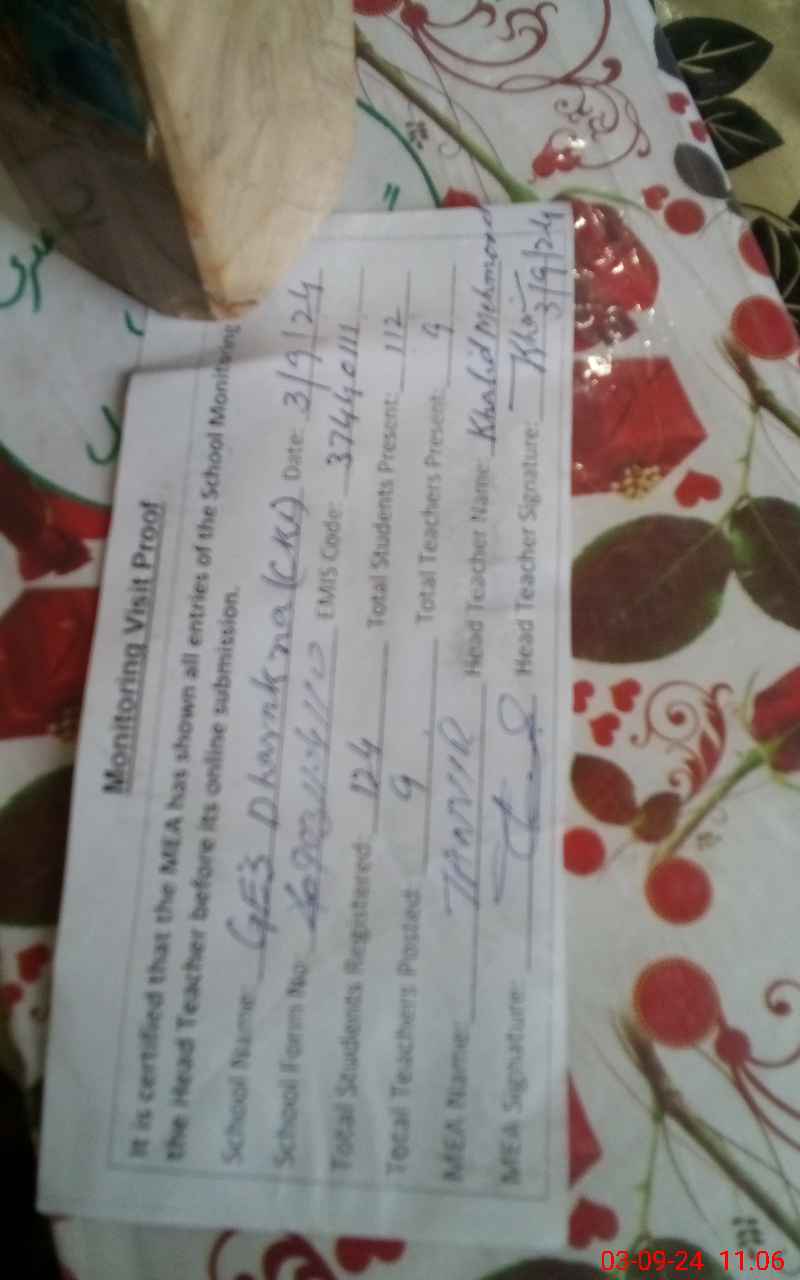 Monitoring Visit Proof
It is certified that the MEA has shown all entries of the School Monitoring
the Head Teacher before its online submission.
School Name: Dharnkna (CKL) Date: 3/9/24
School Form No: EMIS Code:
Total Students Registered: 124 Total Students Present: 112
Total Teachers Posted: 9 Total Teachers Present: 9
MEA Name: TANVIR Head Teacher Name: Khalid Mehmood
MEA Signature: Head Teacher Signature:
3/9/24
03-09-24 11:06